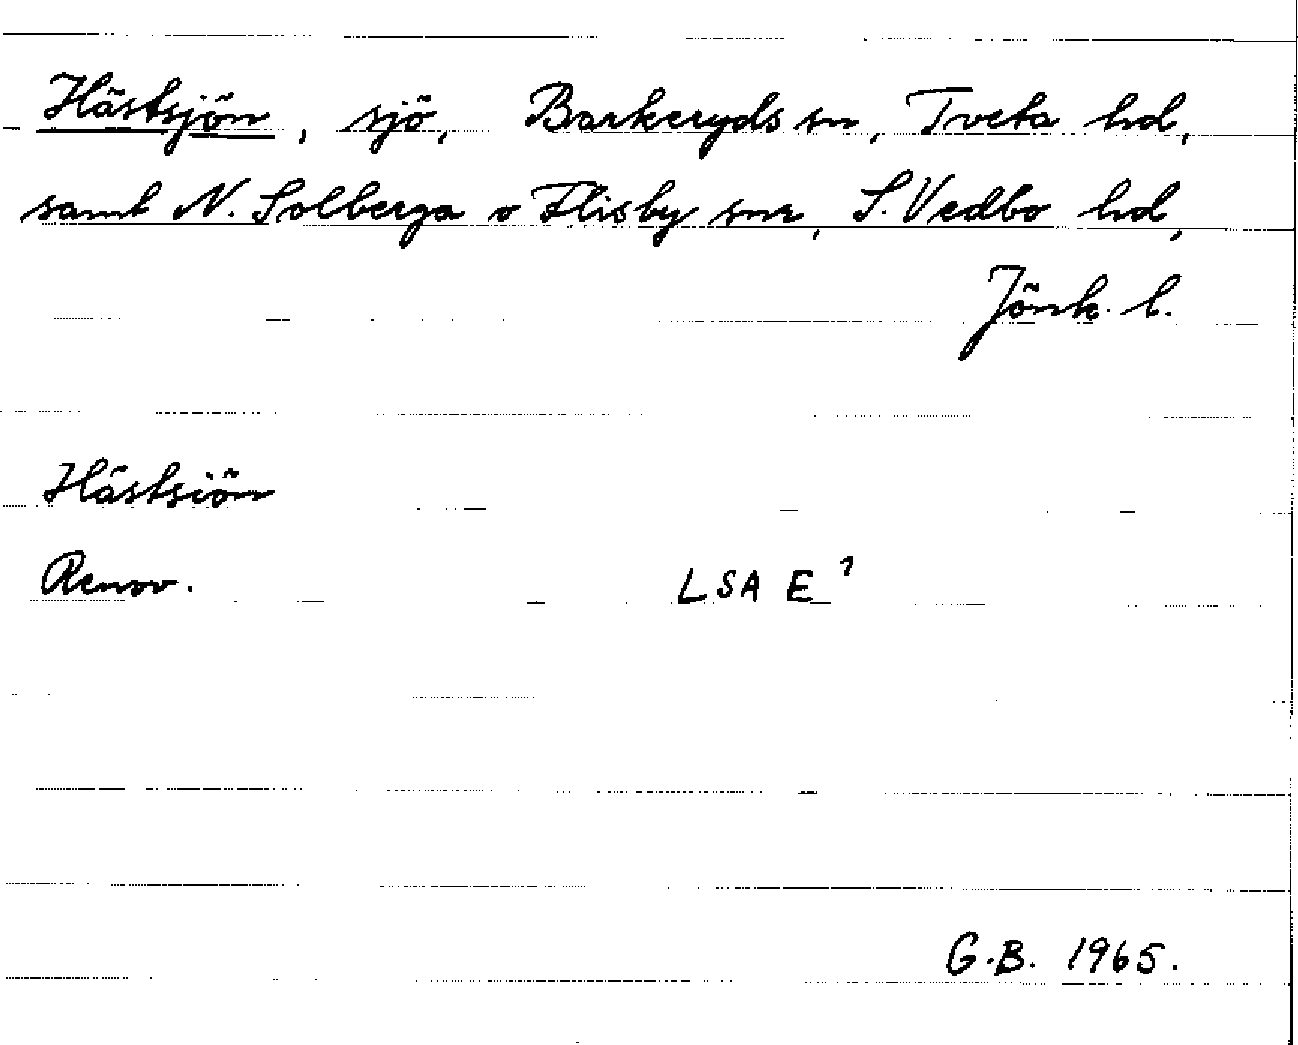 Hästsjön, sjö, Barkeryds sn, Tveta hd,
samt N. Solberga o Flisby snr, S. Vedbo hd,
Jönk. l.
Hästsiön
Renov. LSA E 1
G.B. 1965.